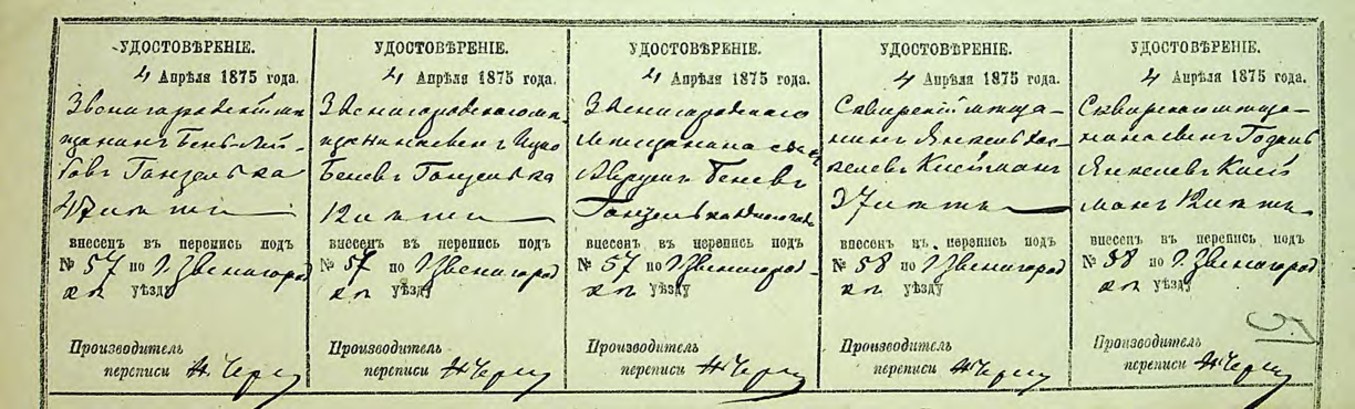 УДОСТОВѢРЕНІЕ.
4 Апрѣля 1875 года.
Звенигородскій мѣ-
щанинъ Бень-Лей-
бовъ Ганзелька
47 лѣтъ
внесенъ въ перепись подъ
№ 57 по г. Звенигород
кѣ уѣзду
Производитель
переписи
УДОСТОВѢРЕНІЕ.
4 Апрѣля 1875 года.
Звенигородскаго мѣ-
щанина сынъ Ицко
Беневъ Ганзелька
12 лѣтъ
внесенъ въ перепись подъ
№ 57 по г. Звенигород
уѣзду
Производитель
переписи
УДОСТОВѢРЕНІЕ.
4 Апрѣля 1875 года.
Звенигородскаго
мѣщанина сынъ
Аврумъ Беневъ
Ганзелька
внесенъ въ перепись подъ
№ 57 по г. Звенигород-
уѣзду
Производитель
переписи
УДОСТОВѢРЕНІЕ.
4 Апрѣля 1875 года.
Сквирскій мѣща-
нинъ Янкель Хас-
келевъ Кисманъ
37 лѣтъ
внесенъ въ перепись подъ
№ 58 по г. Звенигород
уѣзду
Производитель
переписи
УДОСТОВѢРЕНІЕ.
4 Апрѣля 1875 года.
Сквирскаго мѣща-
нина сынъ Годель
Янкелевъ Кис
манъ 12 лѣтъ
внесенъ въ перепись подъ
№ 58 по г. Звенигород
уѣзду
Производитель
переписи